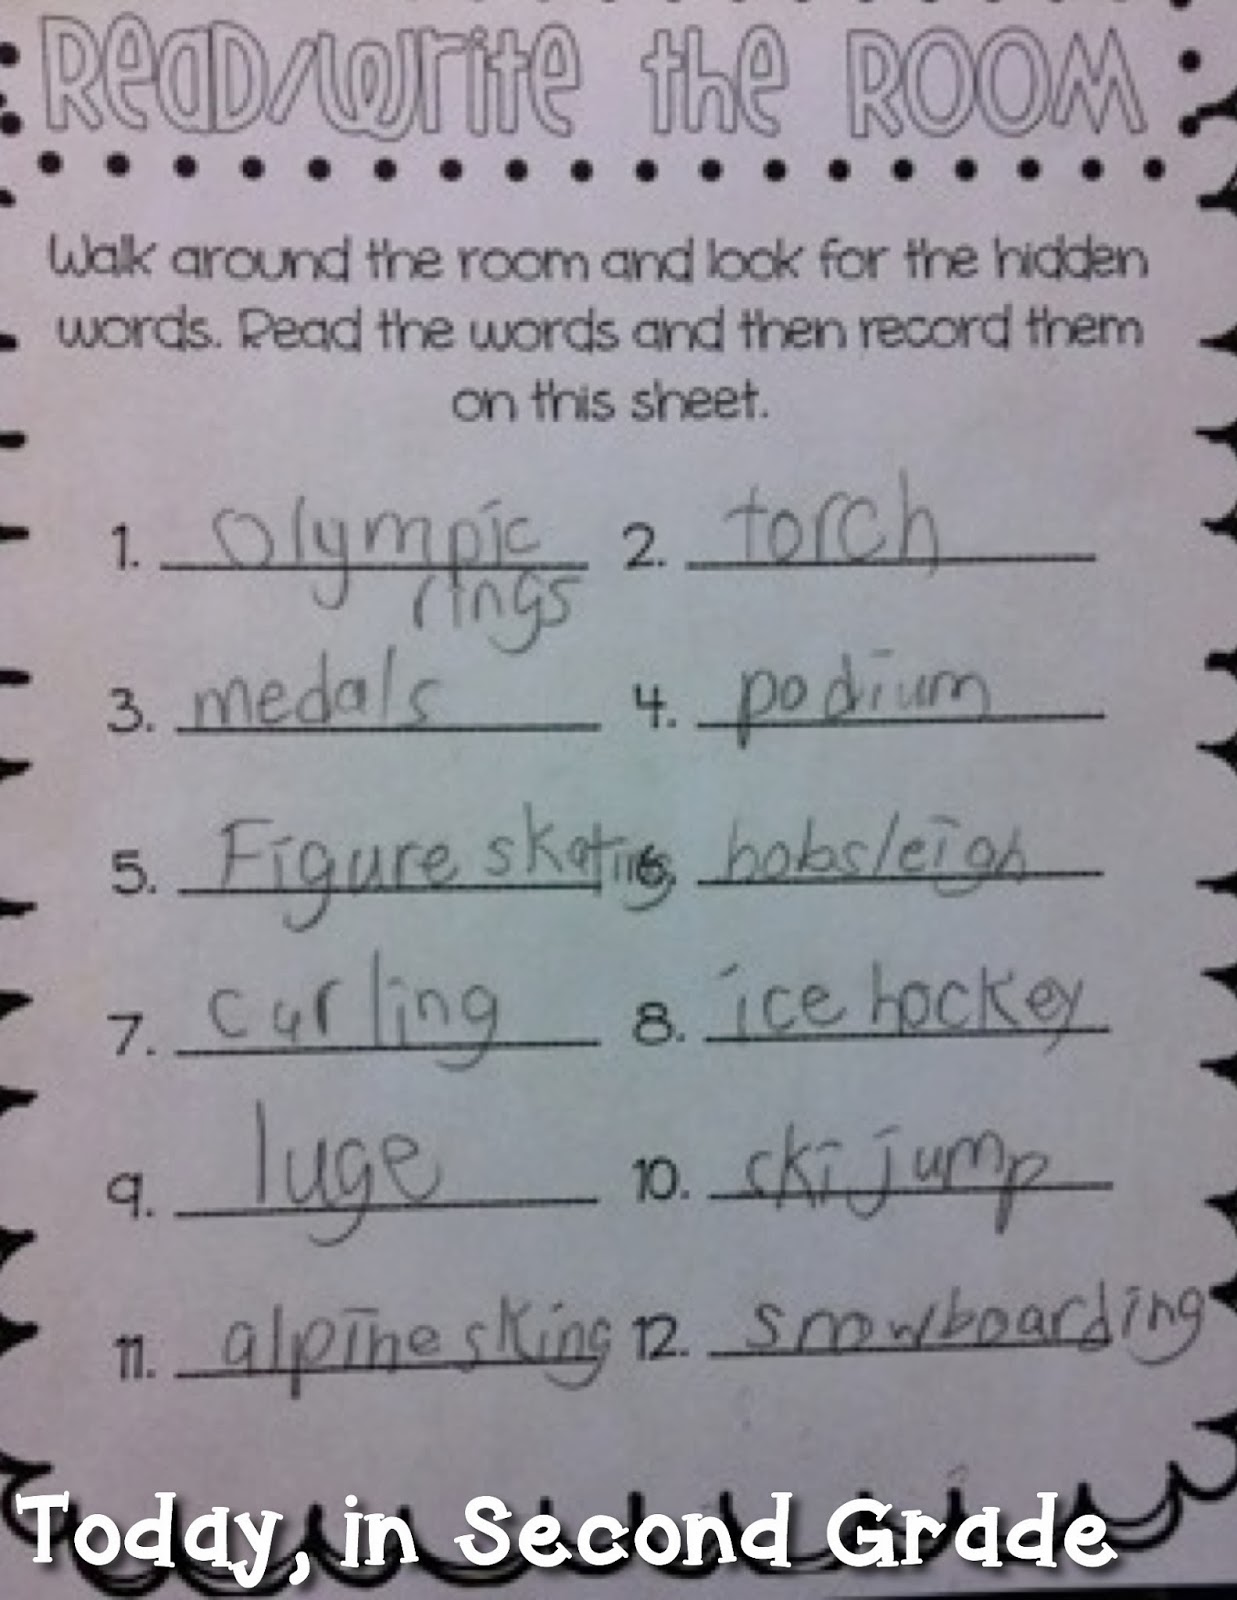 Read/Write the Room
Walk around the room and look for the hidden
words. Read the words and then record them
on this sheet.
1. Olympic rings 2. torch
3. medals 4. podium
5. Figure skating 6. bobsleigh
7. curling 8. ice hockey
9. luge 10. ski jump
11. alpine sking 12. snowboarding
Today, in Second Grade